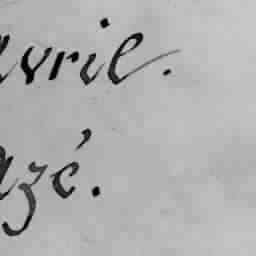 avril.
azé.